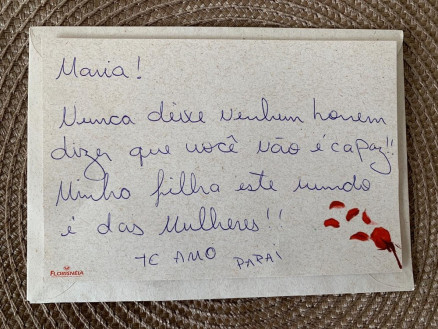 Maria!
Nunca deixe nenhum homem
dizer que você não é capaz!!
Minha filha este mundo
é das Mulheres!!
TE AMO PAPAI
FLORISNÉIA